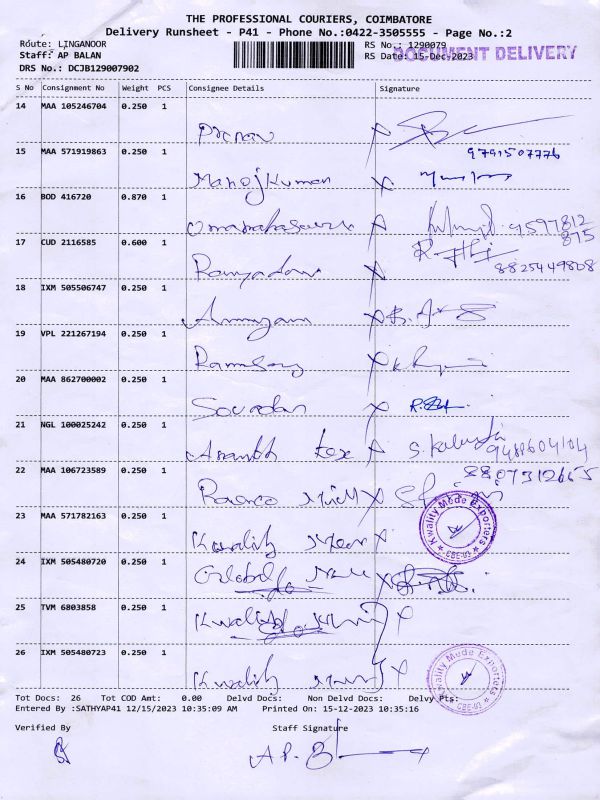 THE PROFESSIONAL COURIERS, COIMBATORE
Delivery Runsheet - P41 - Phone No.:0422-3505555 - Page No.:2
Route: LINGANOOR RS No.: 1290079
Staff: AP BALAN RS Date: 15-Dec-2023 DOCUMENT DELIVERY
DRS No.: DCJB129007902
S No Consignment No Weight PCS Consignee Details Signature
14 MAA 105246704 0.250 1
Pranav
9791507776
15 MAA 571919863 0.250 1
Manojkuman
16 BOD 416720 0.870 1
9597812
875
17 CUD 2116585 0.600 1
8825449808
18 IXM 505506747 0.250 1
19 VPL 221267194 0.250 1
20 MAA 862700002 0.250 1
21 NGL 100025242 0.250 1
Ananth Tex
9488604104
22 MAA 106723589 0.250 1
8807312665
Kwality Mode Exporters
CBE-03
23 MAA 571782163 0.250 1
24 IXM 505480720 0.250 1
Global
25 TVM 6803858 0.250 1
26 IXM 505480723 0.250 1
Kwality Mode Exporters
CBE-03
Tot Docs: 26 Tot COD Amt: 0.00 Delvd Docs: Non Delvd Docs: Delvy Pts:
Entered By :SATHYAP41 12/15/2023 10:35:09 AM Printed On: 15-12-2023 10:35:16
Verified By Staff Signature